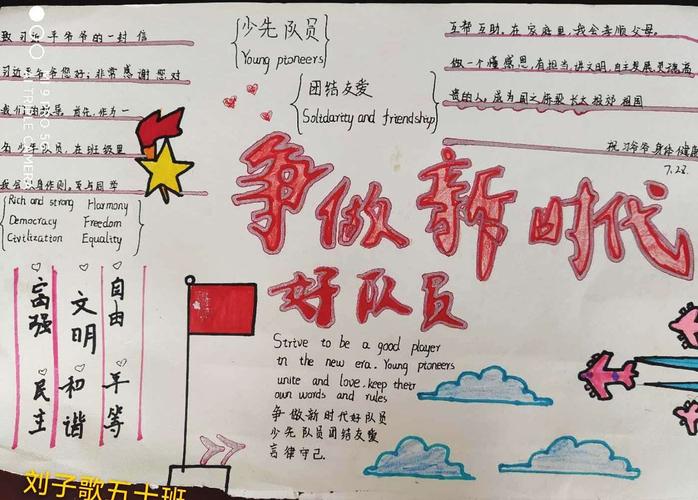 致习近平爷爷的一封信
习近平爷爷您好：非常感谢您对
我们的教导，首先，作为一
名少年队员，在班级里
我会以身作则，要与同学
少先队员
Young pioneers
团结友爱
Solidarity and friendship
互帮互助，在家庭里，我会孝顺父母。
做一个懂感恩，有担当，讲文明，自主发展，灵魂高
贵的人，成为国之栋梁 长大报效祖国
祝习爷爷身体健康
7.23.
争做新时代
好队员
Rich and strong Harmony
Democracy Freedom
Civilization Equality
富强 文明 自由
民主 和谐 平等
Strive to be a good player
in the new era. Young pioneers
unite and love. keep their
own words and rules
争做新时代好队员
少先队员团结友爱
言律守己.
刘子歌五十班